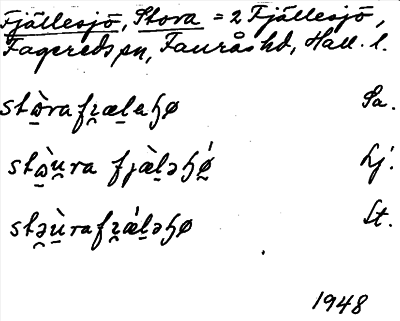 Fjällesjö, Stora = 2 Fjällesjö,
Fagereds sn, Faurås hd, Hall. l.
stὼ̱rafr̯æḻəɧø Sa.
stὼ̱u̯ra fjæ̀ḻəɧǿ̱ Lj.
stə̯ù̱rafr̯ǽḻəɧø St.
1948